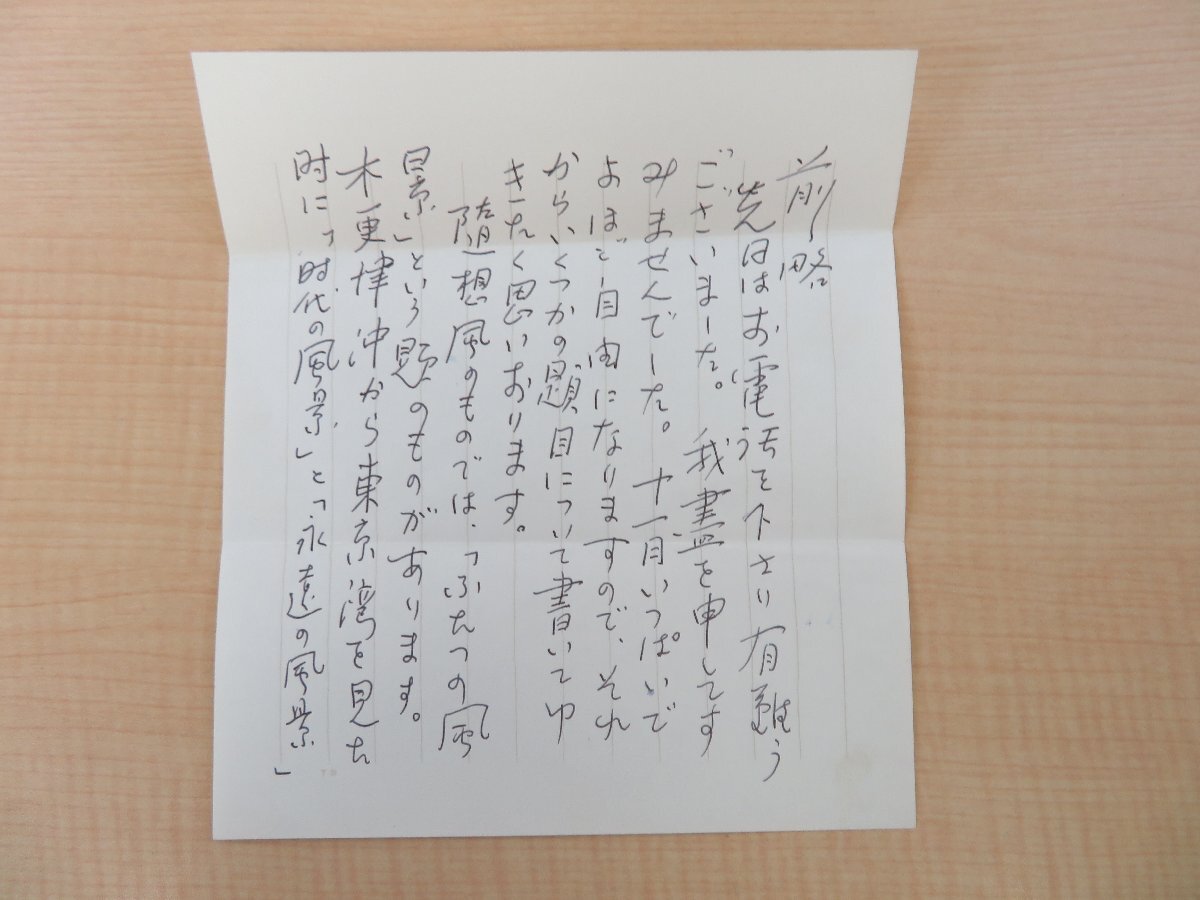 前略
先日はお電話を下さり有難う
ございました。我儘を申してす
みませんでした。十一月いっぱいで
よほど自由になりますので、それ
からいくつかの題目について書いてゆ
きたく思いおります。
随想風のものでは、「ふたつの風
景」という題のものがあります。
木更津沖から東京湾を見た
時に「時代の風景」と「永遠の風景」